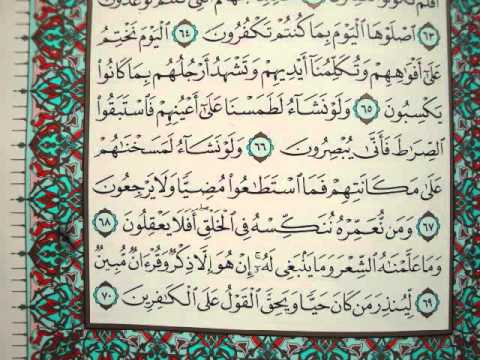 ٦٣ اصْلَوْهَا الْيَوْمَ بِمَا كُنتُمْ تَكْفُرُونَ ٦٤ الْيَوْمَ نَخْتِمُ
عَلَىٰ أَفْوَاهِهِمْ وَتُكَلِّمُنَا أَيْدِيهِمْ وَتَشْهَدُ أَرْجُلُهُم بِمَا كَانُوا
يَكْسِبُونَ ٦٥ وَلَوْ نَشَاءُ لَطَمَسْنَا عَلَىٰ أَعْيُنِهِمْ فَاسْتَبَقُوا
الصِّرَاطَ فَأَنَّىٰ يُبْصِرُونَ ٦٦ وَلَوْ نَشَاءُ لَمَسَخْنَاهُمْ
عَلَىٰ مَكَانَتِهِمْ فَمَا اسْتَطَاعُوا مُضِيًّا وَلَا يَرْجِعُونَ
٦٧ وَمَن نُّعَمِّرْهُ نُنَكِّسْهُ فِي الْخَلْقِ أَفَلَا يَعْقِلُونَ ٦٨
وَمَا عَلَّمْنَاهُ الشِّعْرَ وَمَا يَنبَغِي لَهُ إِنْ هُوَ إِلَّا ذِكْرٌ وَقُرْءَانٌ مُّبِينٌ
٦٩ لِّيُنذِرَ مَن كَانَ حَيًّا وَيَحِقَّ الْقَوْلُ عَلَى الْكَافِرِينَ ٧٠